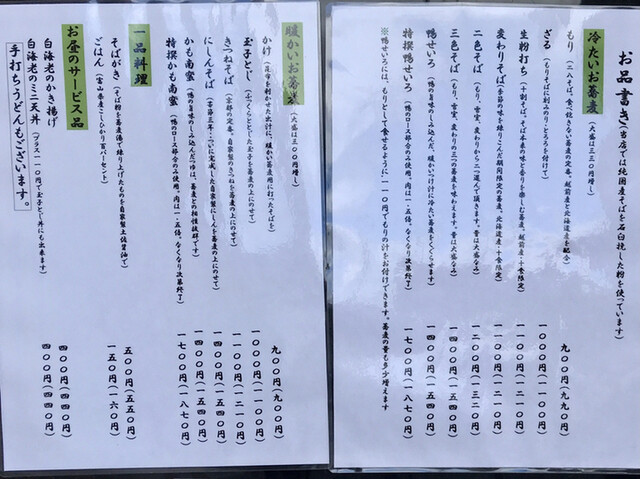 お品書き(当店では純国産そばを石臼挽した粉を使っています)
冷たいお蕎麦(大盛は三三〇円増し)
もり(二八そば、食べ飽きない蕎麦の定番、越前産と北海道産を配合) 九〇〇円(九九〇円)
ざる(もりそばに刻みのり・とろろを付けて) 一〇〇〇円(一一〇〇円)
生粉打ち(十割そば。そば本来の味と香りを楽しむ蕎麦、越前産・十食限定) 一一〇〇円(一二一〇円)
変わりそば(季節の味を練りこんだ期間限定の蕎麦。北海道産・十食限定) 一一〇〇円(一二一〇円)
二色そば(もり、雪実、変わりから二つ選んで頂きます。昔は大盛なみ) 一二〇〇円(一三二〇円)
三色そば(もり、雪実、変わりの三つの蕎麦を味わえます。昔は大盛なみ) 一四〇〇円(一五四〇円)
鴨せいろ(鴨の旨味のしみ込んだ、暖かいつけ汁に冷たい蕎麦をくぐらせます) 一四〇〇円(一五四〇円)
特撰鴨せいろ(鴨のロース部分のみ使用。肉は一・五倍。なくなり次第終了) 一七〇〇円(一八七〇円)
※鴨せいろには、もりとして食せるように一一〇円でもりの汁をお付けできます。蕎麦の量も多少増えます
暖かいお蕎麦(大盛は三〇〇円増し)
かけ(昆布を利かせた出汁に、暖かい蕎麦用に打ったそばを) 九〇〇円(九九〇円)
玉子とじ(ふっくらととじた玉子を蕎麦の上にのせて) 一〇〇〇円(一一〇〇円)
きつねそば(京都の定番、自家製のきつねを蕎麦の上にのせて) 一一〇〇円(一二一〇円)
にしんそば(苦節五年…ついに完成した自家製にしんを蕎麦の上にのせて) 一四〇〇円(一五四〇円)
かも南蛮(鴨の旨味のしみ込んだつゆは、蕎麦との相性抜群です) 一四〇〇円(一五四〇円)
特撰かも南蛮(鴨のロース部分のみ使用。肉は一・五倍。なくなり次第終了) 一七〇〇円(一八七〇円)
一品料理
そばがき(そば粉を蕎麦湯で練り上げたものを自家製土佐醤油で) 五〇〇円(五五〇円)
ごはん(富山県産こしひかり百パーセント) 一五〇円(一六〇円)
お昼のサービス品
白海老のかき揚げ 四〇〇円(四四〇円)
白海老のミニ天丼(プラス一一〇円で玉子とじ丼にも出来ます) 四〇〇円(四四〇円)
手打ちうどんもございます。